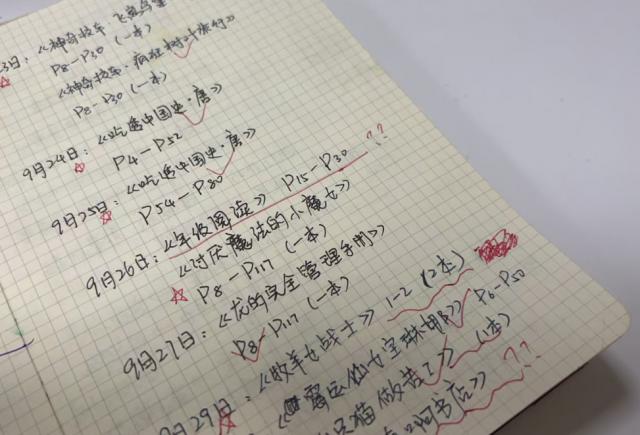 3日：《神奇校车·飞
P8-P30（一本）
《神奇校车·疯狂树叶旅行》
P8-P30（一本）
9月24日：《吃透中国史·唐》
P4-P52
9月25日：《吃透中国史·唐》
P54-P80
《年级阅读》 P15-P30 ??
9月26日：《讨厌魔法的小魔女》
P8-P117（一本）
9月27日：《龙的完全管理手册》
P8-P117（一本）
《牧羊女战士》1-2（2本）
9月29日：《 P6-P50
猫做 》（1本）
书店》 ??